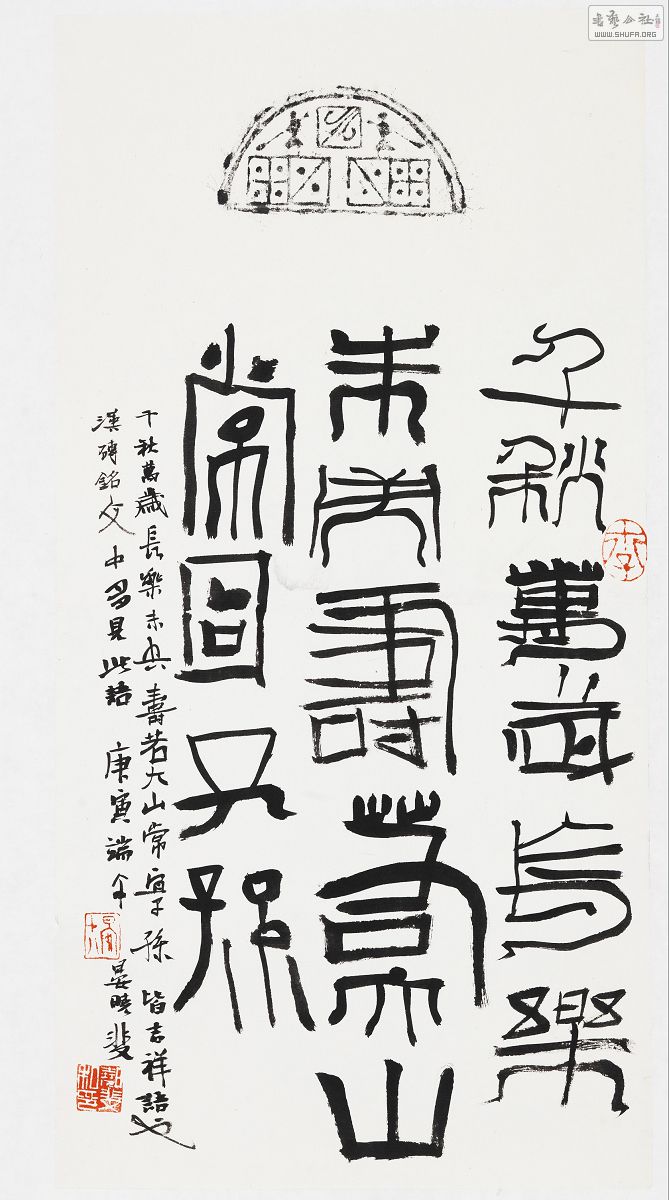 千秋萬歲長樂
未央壽若大山
常宜子孫
千秋萬歲長樂未央壽若大山常宜子孫皆吉祥語也
漢磚銘文中多見此語 庚寅端午 晏曉斐
書藝公社
WWW.SHUFA.ORG